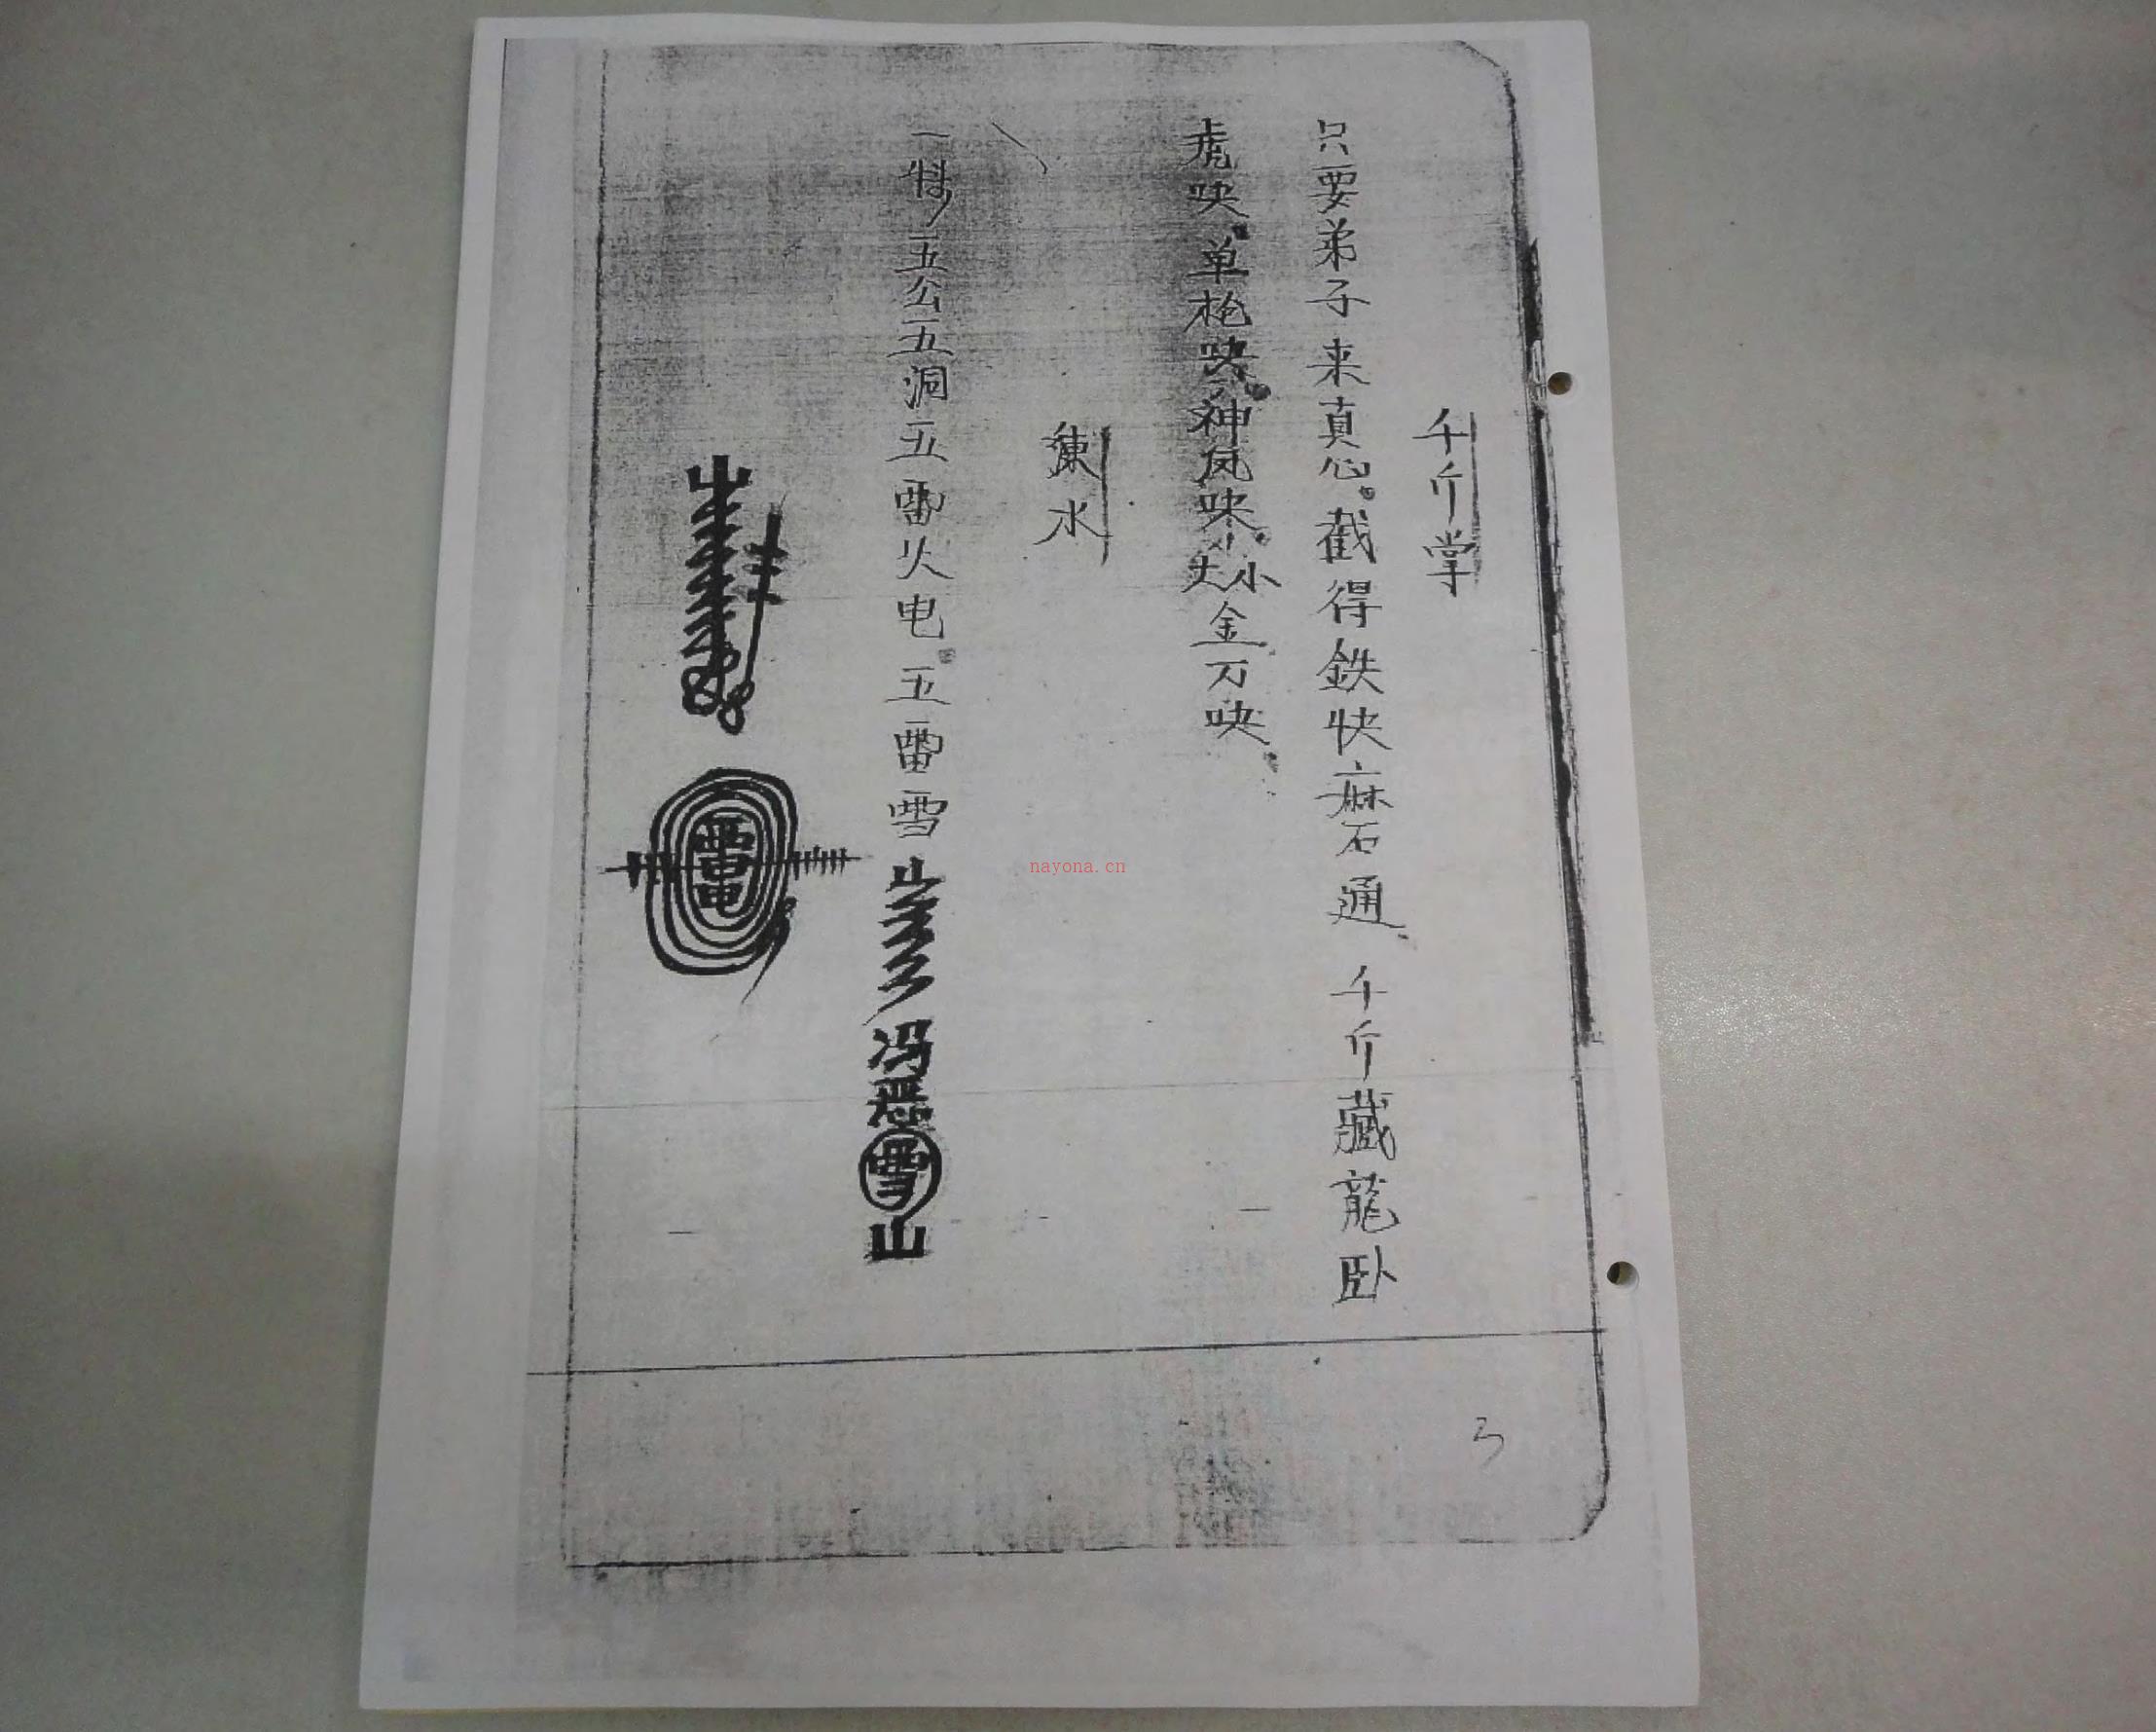 千斤掌
只要弟子来真心。截得鉄快麻石通、千斤藏龍卧
虎𠯿、单枪𠯿、六神风𠯿、大小金刀𠯿、
水
一 五公五洞五雷火电。五雷雪
冯 雪山
山
雷
3
nayona.cn